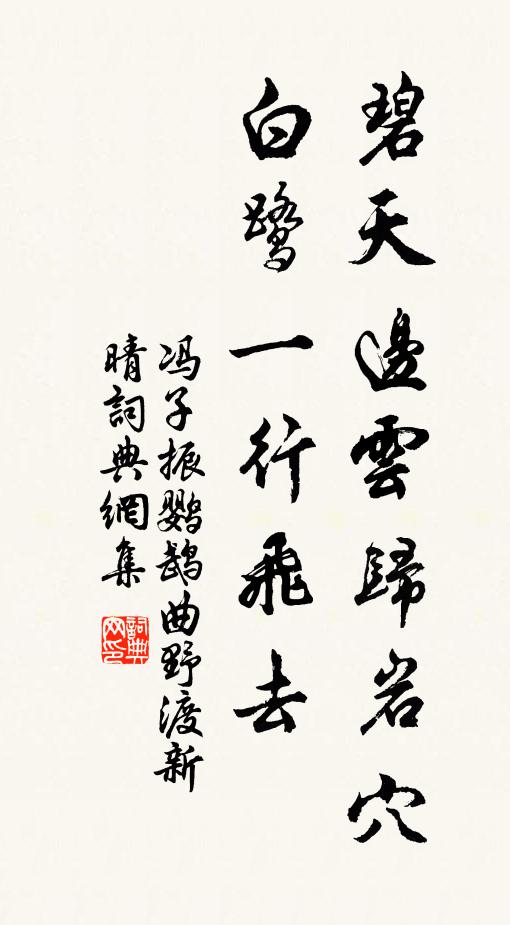 碧天邊雲歸岩穴
白鷺一行飛去
冯子振鹦鹉曲野渡新
晴詞典網集
詞典
网印